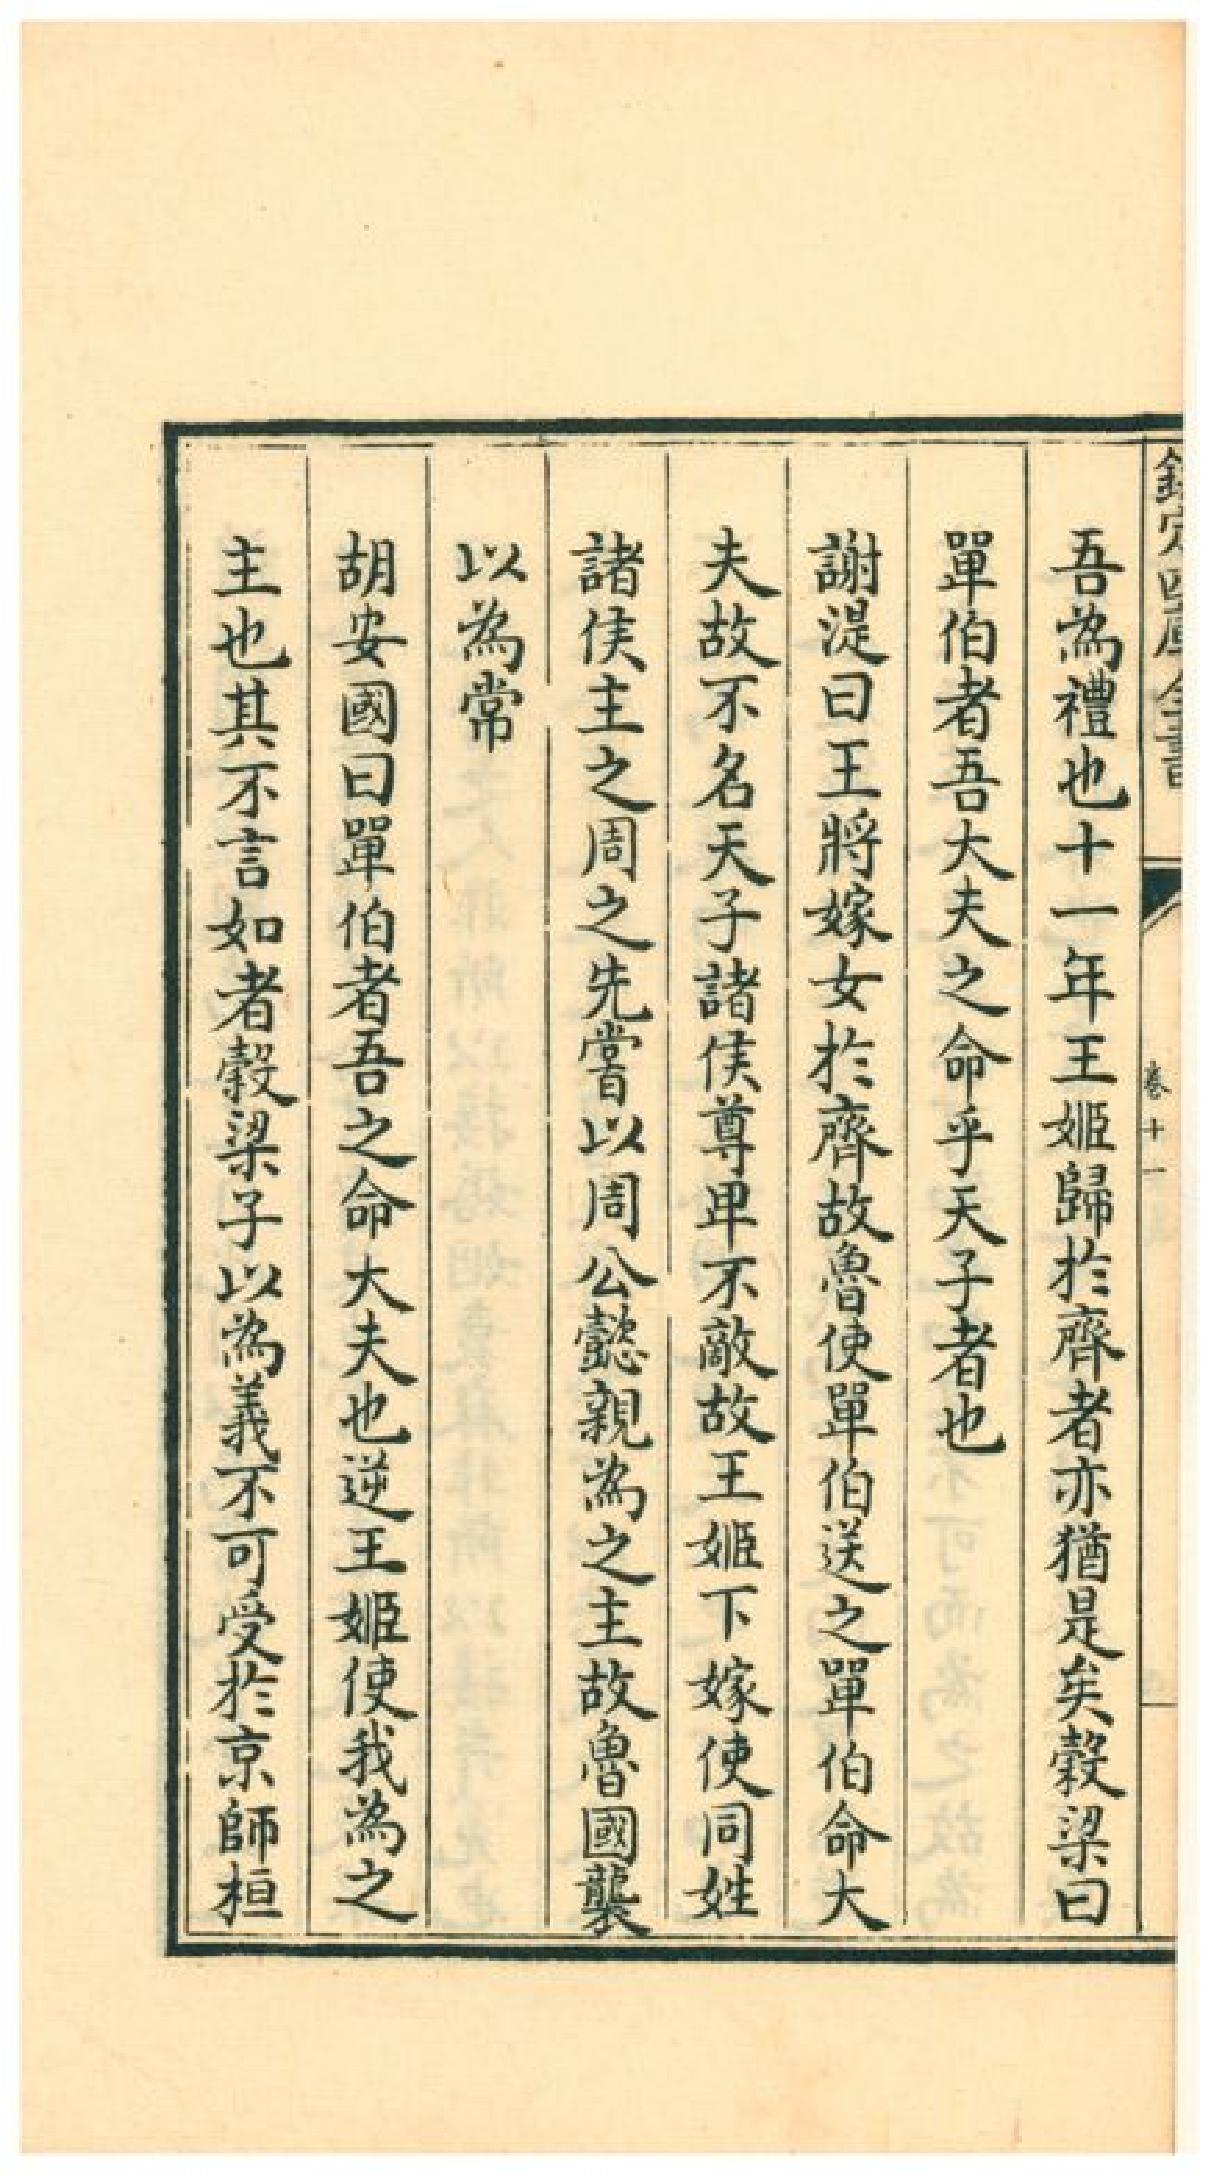 欽定四庫全書
卷十一
吾為禮也十一年王姬歸於齊者亦猶是矣穀梁曰
單伯者吾大夫之命乎天子者也
謝湜曰王將嫁女於齊故魯使單伯送之單伯命大
夫故不名天子諸侯尊卑不敵故王姬下嫁使同姓
諸侯主之周之先嘗以周公懿親為之主故魯國襲
以為常
胡安國曰單伯者吾之命大夫也逆王姬使我為之
主也其不言如者穀梁子以為義不可受於京師桓